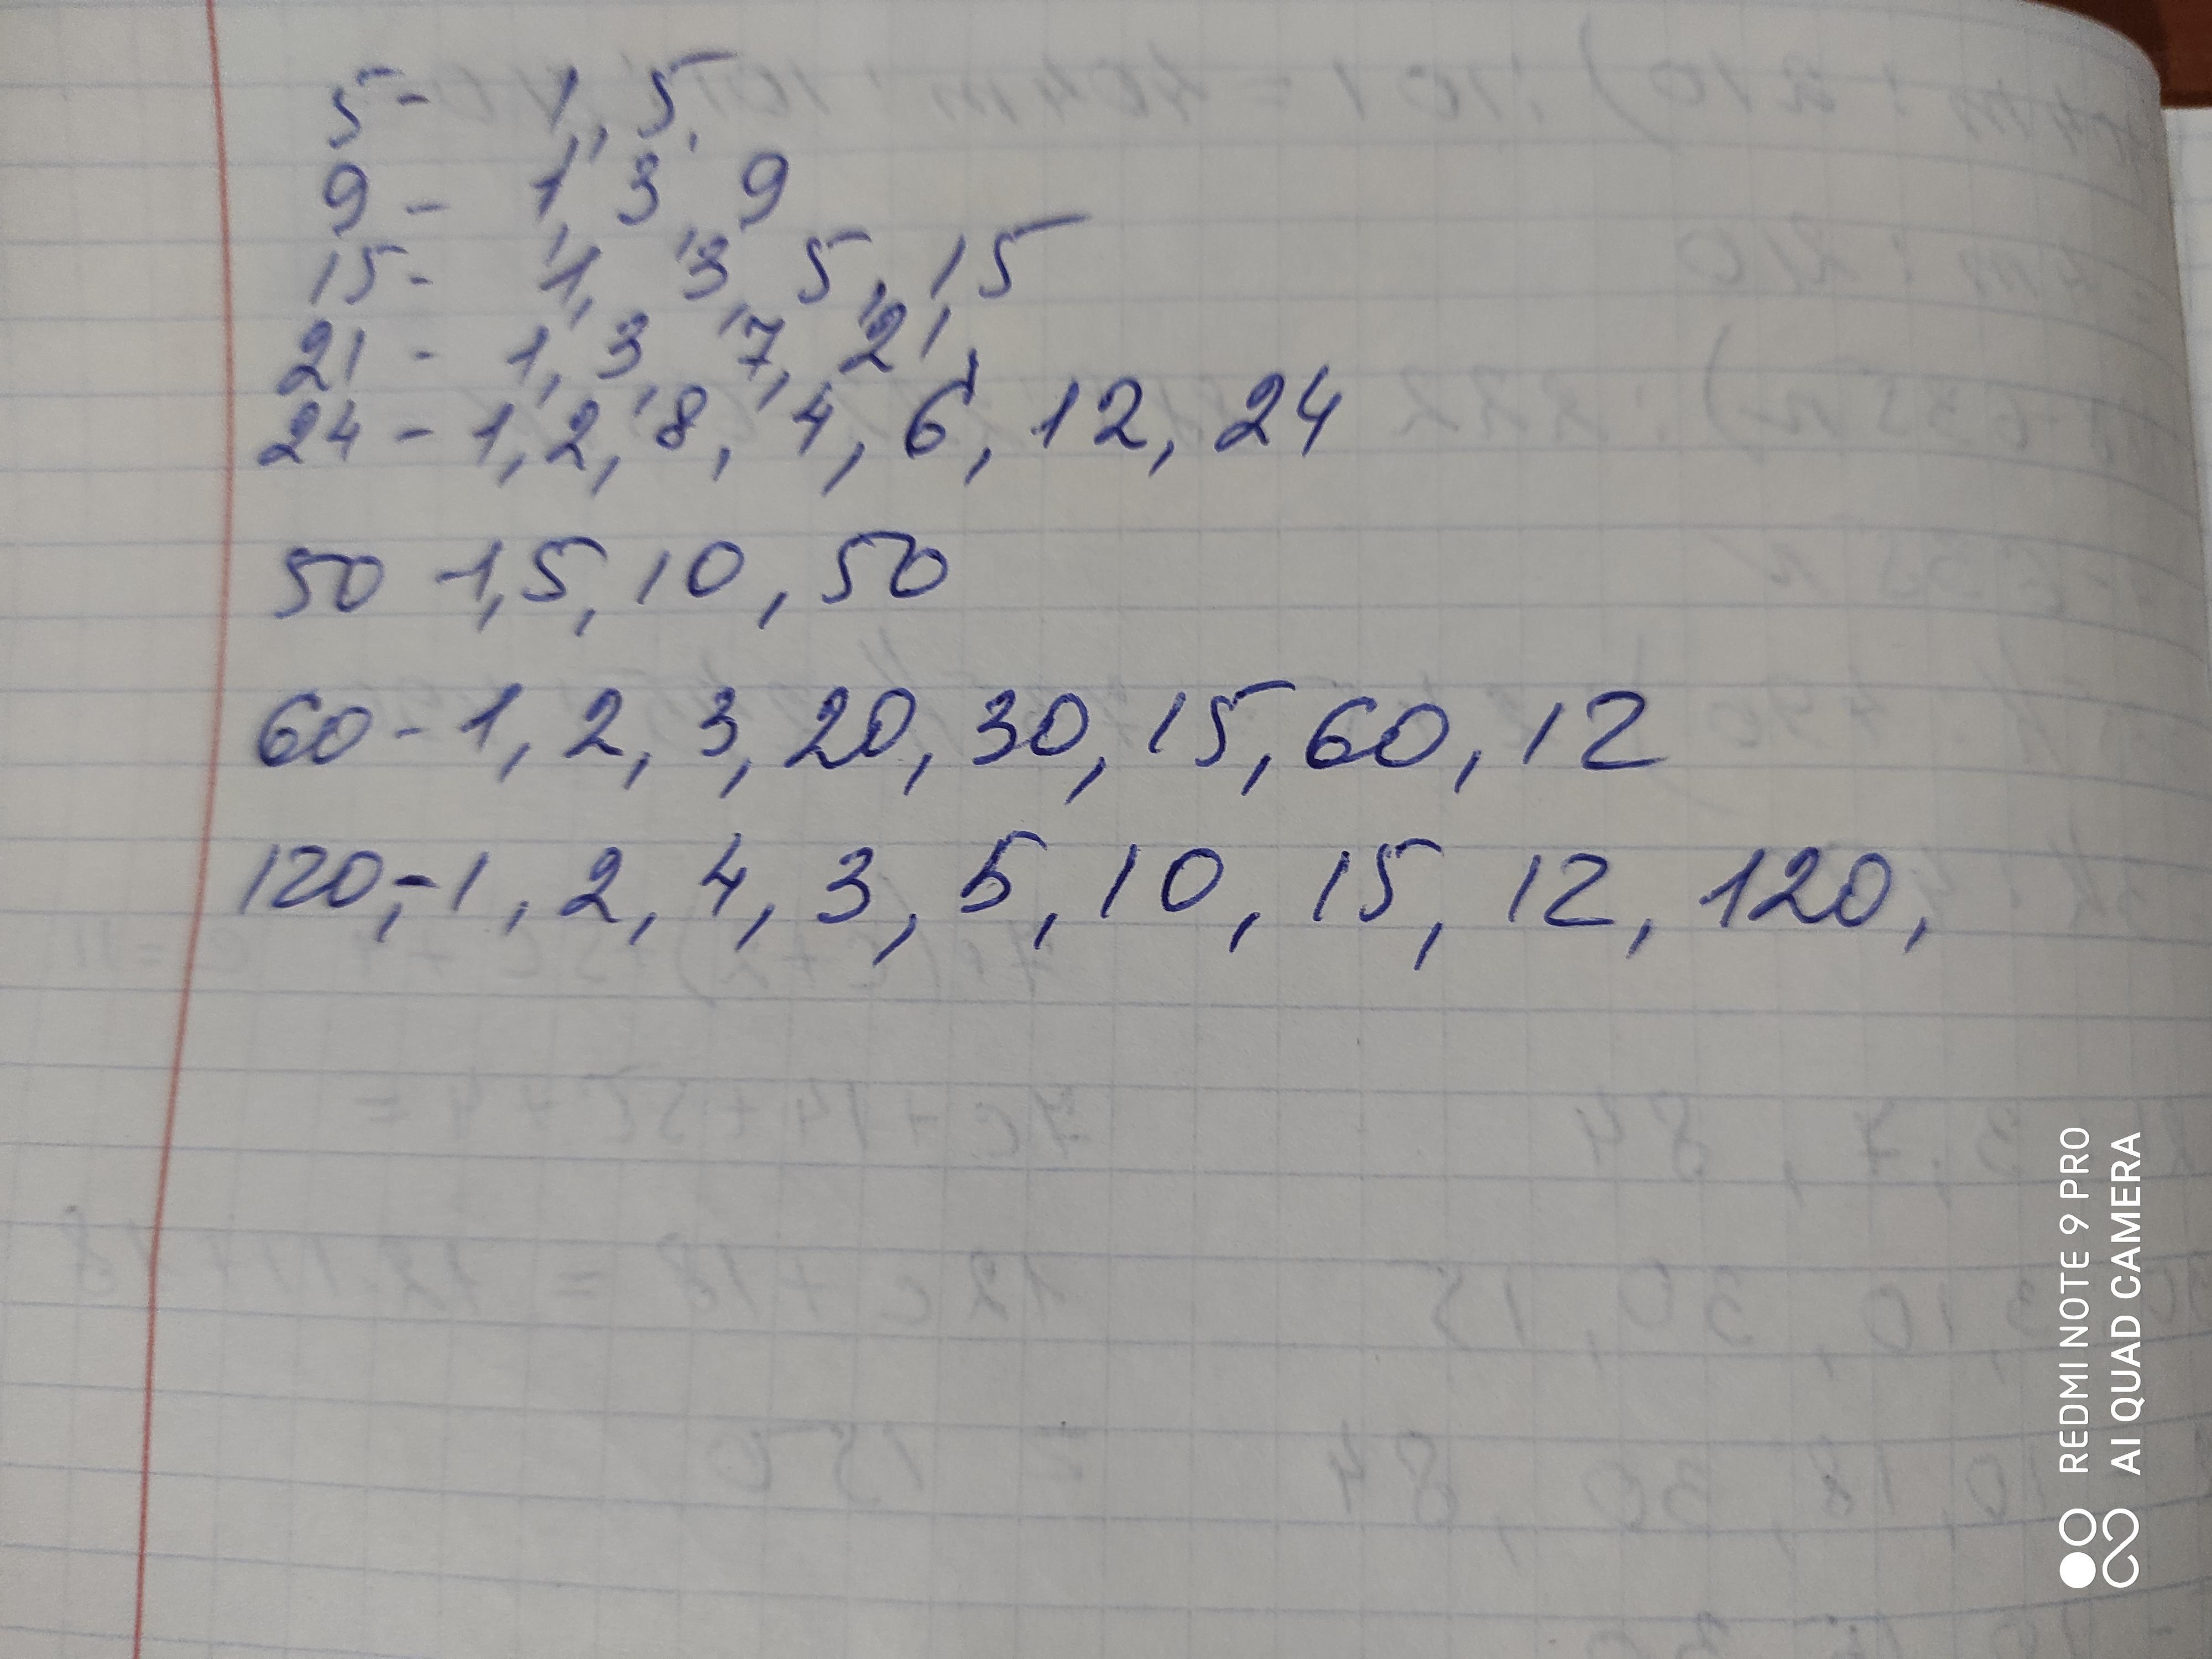 5 - 1, 5.
9 - 1, 3, 9
15 - 1, 3, 5, 15
21 - 1, 3, 7, 21,
24 - 1, 2, 8, 4, 6, 12, 24
50 - 1, 5, 10, 50
60 - 1, 2, 3, 20, 30, 15, 60, 12
120, - 1, 2, 4, 3, 5, 10, 15, 12, 120,
REDMI NOTE 9 PRO
AI QUAD CAMERA